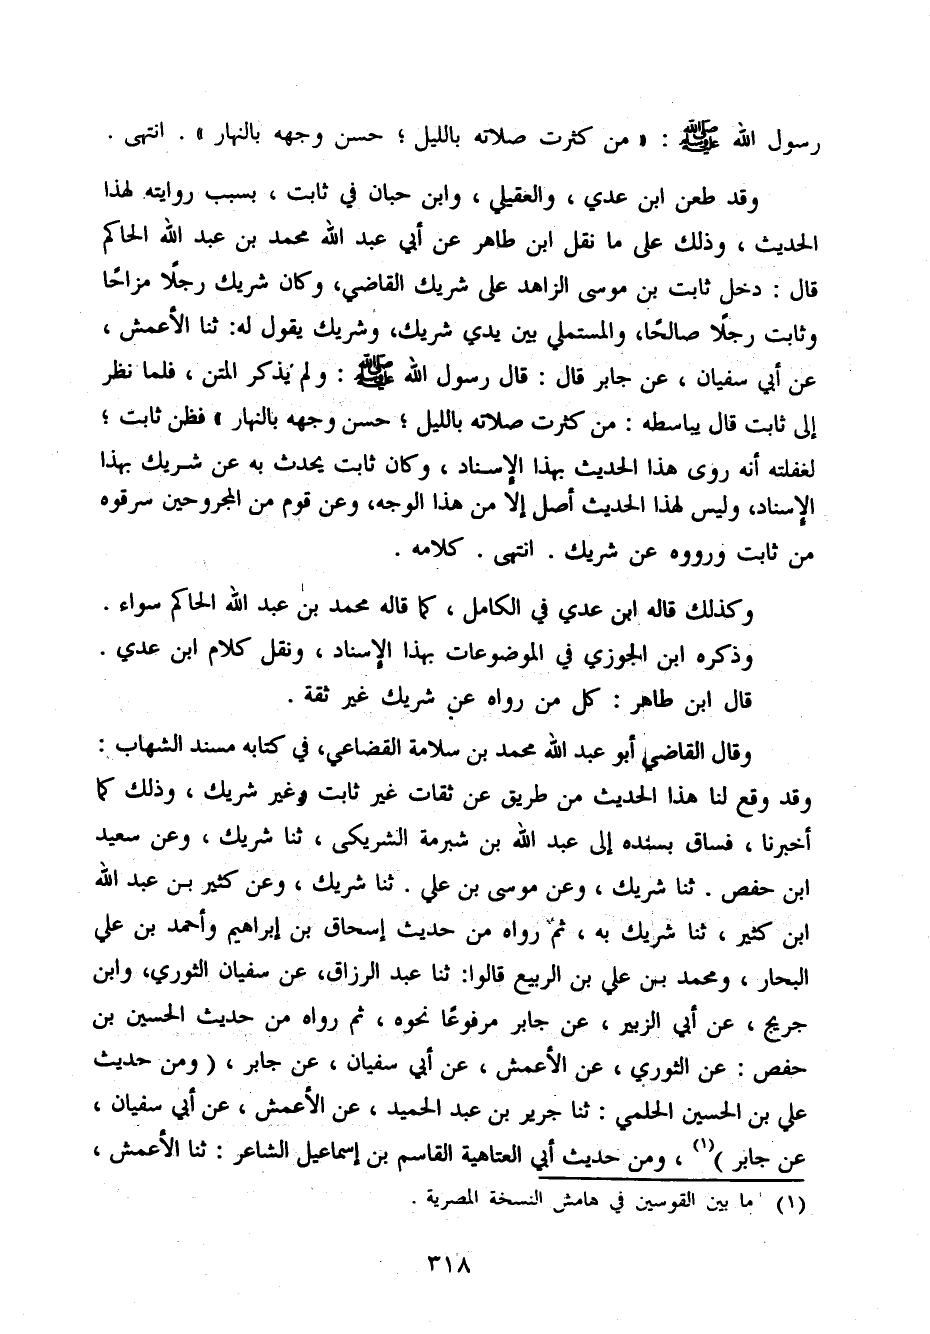 رسول الله ﷺ : « من كثرت صلاته بالليل ؛ حسن وجهه بالنهار » . انتهى .
وقد طعن ابن عدي ، والعقيلي ، وابن حبان في ثابت ، بسبب روايته لهذا
الحديث ، وذلك على ما نقل ابن طاهر عن أبي عبد الله محمد بن عبد الله الحاكم
قال : دخل ثابت بن موسى الزاهد على شريك القاضي، وكان شريك رجلًا مزاحًا
وثابت رجلًا صالحًا، والمستملي بين يدي شريك، وشريك يقول له: ثنا الأعمش ،
عن أبي سفيان ، عن جابر قال : قال رسول الله ﷺ : ولم يذكر المتن ، فلما نظر
إلى ثابت قال يباسطه : من كثرت صلاته بالليل ؛ حسن وجهه بالنهار » فظن ثابت ؛
لغفلته أنه روى هذا الحديث بهذا الإسناد ، وكان ثابت يحدث به عن شريك بهذا
الإسناد، وليس لهذا الحديث أصل إلا من هذا الوجه، وعن قوم من المجروحين سرقوه
من ثابت ورووه عن شريك . انتهى . كلامه .
وكذلك قاله ابن عدي في الكامل ، كما قاله محمد بن عبد الله الحاكم سواء .
وذكره ابن الجوزي في الموضوعات بهذا الإسناد ، ونقل كلام ابن عدي .
قال ابن طاهر : كل من رواه عن شريك غير ثقة .
وقال القاضي أبو عبد الله محمد بن سلامة القضاعي، في كتابه مسند الشهاب :
وقد وقع لنا هذا الحديث من طريق عن ثقات غير ثابت وغير شريك ، وذلك كما
أخبرنا ، فساق بسنده إلى عبد الله بن شبرمة الشريكى ، ثنا شريك ، وعن سعيد
ابن حفص . ثنا شريك ، وعن موسى بن علي . ثنا شريك ، وعن كثير بن عبد الله
ابن كثير ، ثنا شريك به ، ثم رواه من حديث إسحاق بن إبراهيم وأحمد بن علي
البحار ، ومحمد بن علي بن الربيع قالوا: ثنا عبد الرزاق، عن سفيان الثوري، وابن
جريج ، عن أبي الزبير ، عن جابر مرفوعًا نحوه ، ثم رواه من حديث الحسين بن
حفص : عن الثوري ، عن الأعمش ، عن أبي سفيان ، عن جابر ، ( ومن حديث
علي بن الحسين الحلمي : ثنا جرير بن عبد الحميد ، عن الأعمش ، عن أبي سفيان ،
عن جابر )(١) ، ومن حديث أبي العتاهية القاسم بن إسماعيل الشاعر : ثنا الأعمش ،
(١) ما بين القوسين في هامش النسخة المصرية .
٣١٨